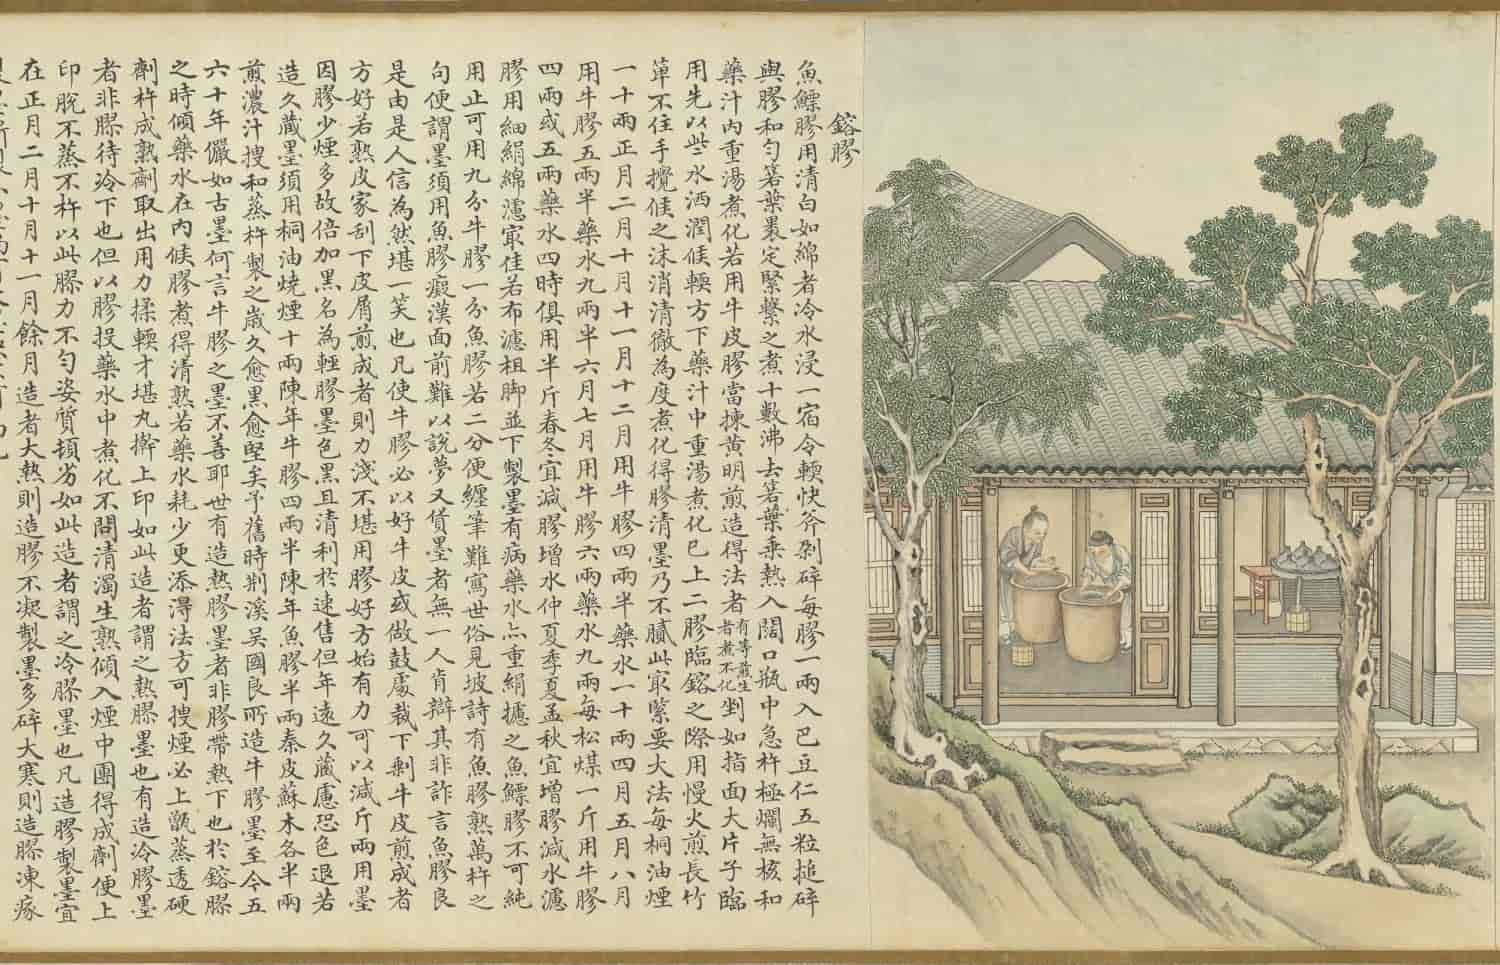 鎔膠
魚鰾膠用清白如綿者冷水浸一宿令輭快斧剁碎每膠一兩入巴豆仁五粒搥碎
與膠和勻箬葉裹定緊繫之煮十數沸去箬葉乘熱入闊口瓶中急杵極爛無核和
藥汁內重湯煮化若用牛皮膠當揀黃明煎造得法者有等煎生者煮不化剉如指面大片子臨
用先以些水洒潤候輭方下藥汁中重湯煮化已上二膠臨鎔之際用慢火煎長竹
箄不住手攪候之沫消清徹為度煮化得膠清墨乃不膩此㝡緊要大法每桐油煙
一十兩正月二月十月十一月十二月用牛膠四兩半藥水一十兩四月五月八月
用牛膠五兩半藥水九兩半六月七月用牛膠六兩藥水九兩每松煤一斤用牛膠
四兩或五兩藥水四時俱用半斤春冬宜減膠增水仲夏季夏孟秋宜增膠減水濾
膠用細絹綿濾㝡佳若布濾粗脚並下製墨有病藥水亦重絹攄之魚鰾膠不可純
用止可用九分牛膠一分魚膠若二分便纏筆難寫世俗見坡詩有魚膠熟萬杵之
句便謂墨須用魚膠癡漢面前難以說夢又賃墨者無一人肯辯其非詐言魚膠良
是由是人信為然堪一笑也凡使牛膠必以好牛皮或做鼓處裁下剩牛皮煎成者
方好若熟皮家刮下皮屑煎成者則力淺不堪用膠好方始有力可以減斤兩用墨
因膠少煙多故倍加黑名為輕膠墨色黑且清利於速售但年遠久藏慮恐色退若
造久藏墨須用桐油燒煙十兩陳年牛膠四兩半陳年魚膠半兩秦皮蘇木各半兩
煎濃汁搜和蒸杵製之歲久愈黑愈堅矣予舊時荆溪吳國良所造牛膠墨至今五
六十年儼如古墨何言牛膠之墨不善耶世有造熱膠墨者非膠帶熱下也於鎔膠
之時傾藥水在內候膠煮得清熟若藥水耗少更添得法方可搜煙必上甑蒸透硬
劑杵成熟劑取出用力揉輭才堪丸擀上印如此造者謂之熱膠墨也有造冷膠墨
者非膠待冷下也但以膠投藥水中煮化不問清濁生熟傾入煙中團得成劑便上
印脫不蒸不杵以此膠力不勻姿質頓劣如此造者謂之冷膠墨也凡造膠製墨宜
在正月二月十月十一月餘月造者大熱則造膠不凝製墨多碎大寒則造膠凍瘃